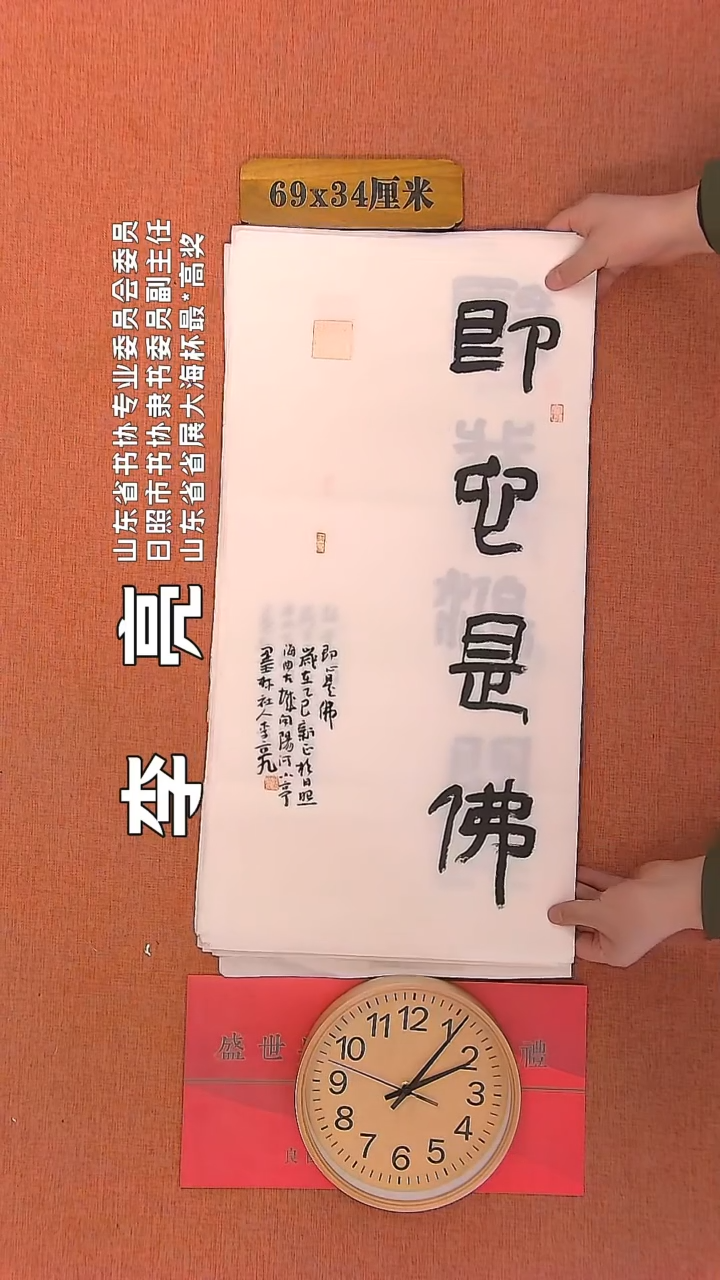 69x34厘米
山东省书协专业委员会委员
日照市书协隶书委员副主任
山东省省展大海杯最*高奖
李 亮
即
心
是
佛
即心是佛
歲在乙巳新正於日照
海曲大城向陽河小亭
墨林社人李亮
盛世
禮
良
12
1
2
3
4
5
6
7
8
9
10
11